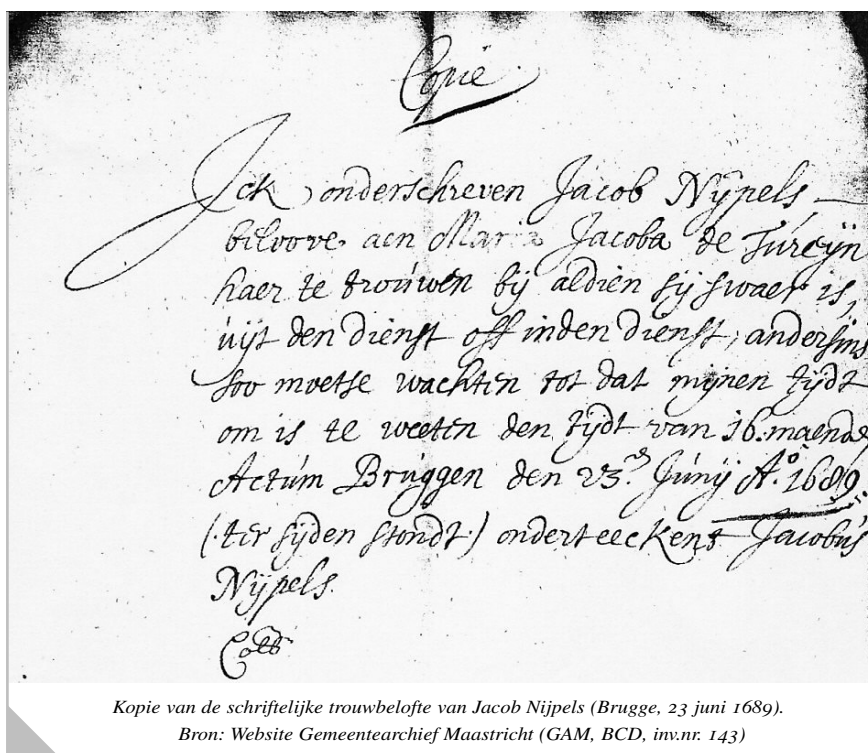 Copie
Ick onderschreven Jacob Nÿpels
beloove aen Maria Jacoba de Tureÿn
haer te trouwen bij aldien sij swaer is,
uijt den dienst off inden dienst, andersins
soo moetse wachten tot dat mijnen tijdt
om is te weeten den tijdt van 16. maende
Actum Bruggen den 23.en Junij Ao. 1689.
(.ter sijden stondt.) onderteeckent Jacobus
Nÿpels.
Kopie van de schriftelijke trouwbelofte van Jacob Nijpels (Brugge, 23 juni 1689).
Bron: Website Gemeentearchief Maastricht (GAM, BCD, inv.nr. 143)